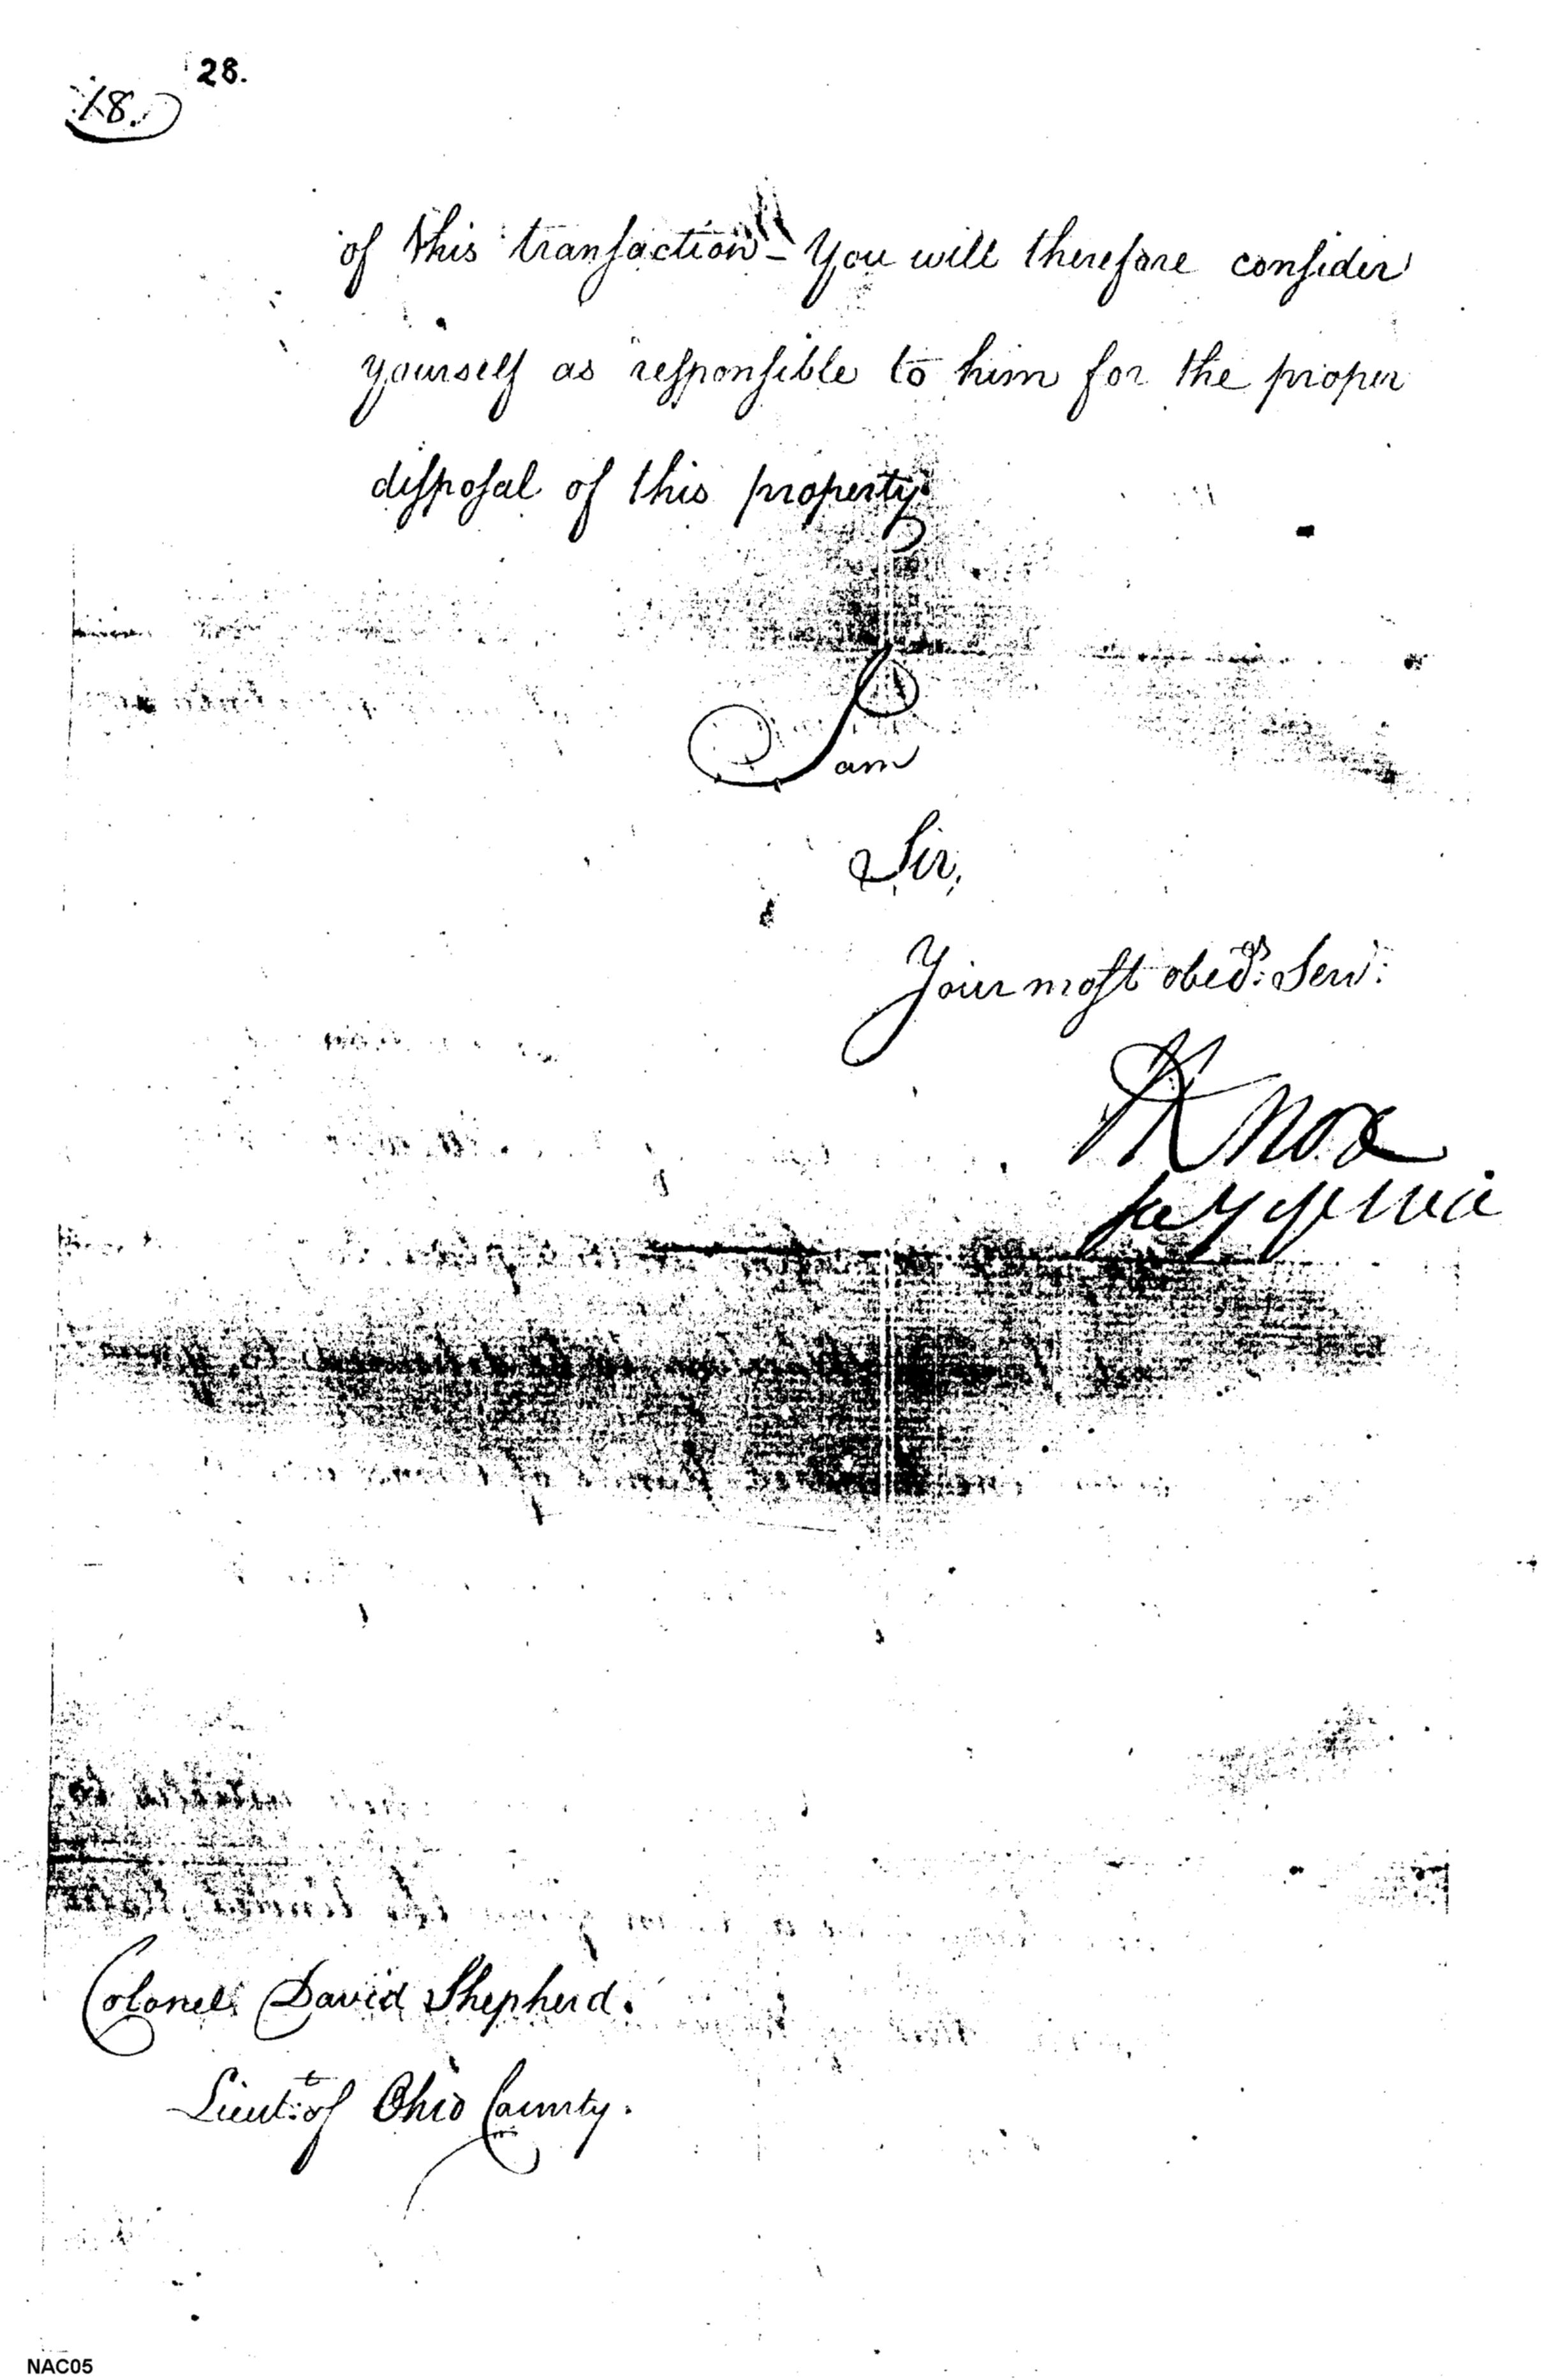 28.
18.
of this transaction - You will therefore consider
yourself as responsible to him for the proper
disposal of this property.
I am
Sir,
Your most obed. Serv.
HKnox
Colonel David Shepherd.
Lieut. of Ohio County.
NAC05